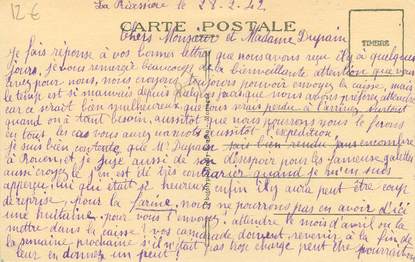 12€
La Réassière le 28-2-42
CARTE POSTALE
TIMBRE
Chers Monsieur et Madame Duprain
je fais réponse à vos bonnes lettres que nous avons reçu il y a quelques
jours, je vous remercie beaucoup de la bienveillante attention que vous
avez pour nous, nous croyons toujours pouvoir envoyer la caisse, mais
le temps est si mauvais depuis quelque temps que nous avons préféré attendre
car ce serait bien malheureux que vous perdre à l'arrivée surtout
quand on a tant besoin, aussitôt que nous pourrons nous le ferons
en tout les cas vous aurez un mot aussitôt l'expédition
je suis bien contente que Mr Duprain
à Rouen, et je juge aussi de son désespoir pour les fameuses galettes
aussi croyez le j'en est été très contrariée quand je m'en suis
aperçue, lui qui était si heureux enfin il y aura peut être coup
de reprise, pour la farine, nous ne pourrons pas en avoir d'ici
une huitaine, pour vous l'envoyer attendre le mois d'avril ou la
mettre dans la caisse! vos
la semaine prochaine s'il n'était pas trop chargé peut être pourrait
leur en donner un peu!